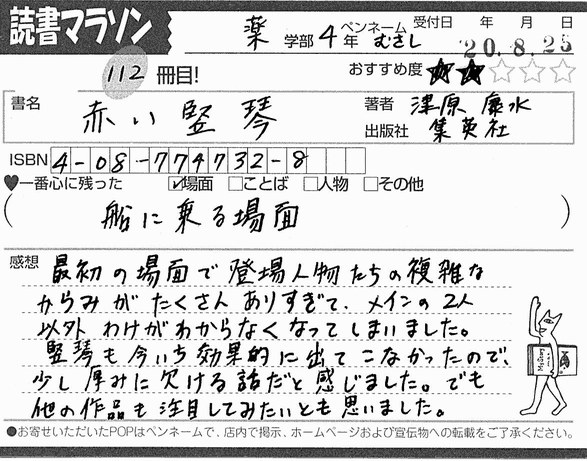 読書マラソン
薬 学部 4 年 ペンネーム むさし 受付日 年 月 日
20.8.25
112 冊目! おすすめ度 ★★☆☆☆
書名 赤い竪琴 著者 津原 康水
出版社 集英社
ISBN 4-08-774732-8
♥一番心に残った ☑場面 □ことば □人物 □その他
( 船に乗る場面 )
感想 最初の場面で登場人物たちの複雑な
からみがたくさんありすぎて、メインの2人
以外わけがわからなくなってしまいました。
竪琴も今いち効果的に出てこなかったので、
少し厚みに欠ける話だと感じました。でも
他の作品も注目してみたいとも思いました。
●お寄せいただいたPOPはペンネームで、店内で掲示、ホームページおよび宣伝物への転載をご了承ください。